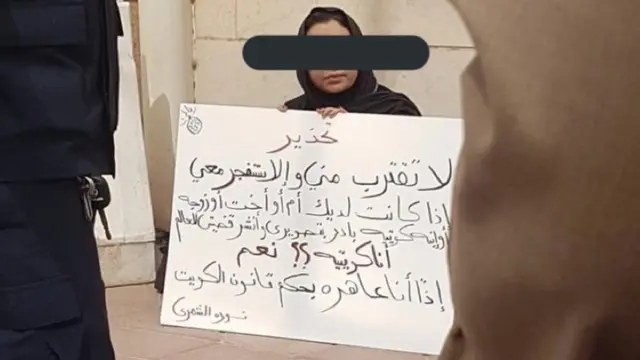 تحذير
لا تقترب مني وإلا ستنفجر معي
إذا كانت لديك أم أو أخت أو زوجه
أو إبنه كويتيه بادر بتصويري وأنشر قضيتي للعالم
أنا كويتيه ؟؟ نعم
إذاً أنا عاهره بحكم قانون الكويت
نوره الشمري